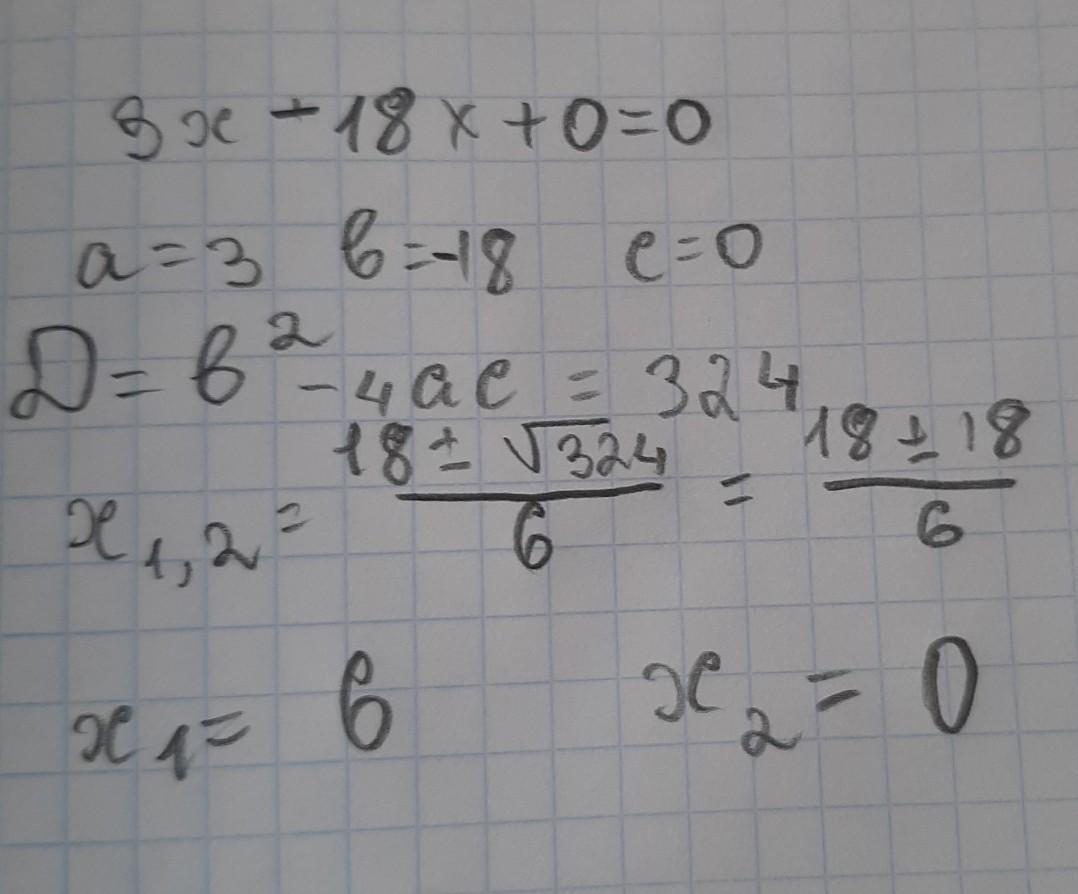 3x - 18x + 0 = 0
a = 3 b = -18 c = 0
D = b² - 4ac = 324
x₁,₂ = (18 ± √324)/6 = (18 ± 18)/6
x₁ = 6 x₂ = 0